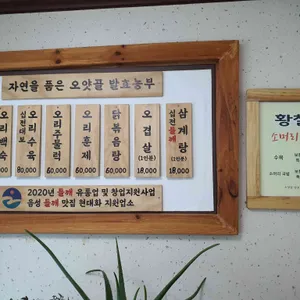 자연을 품은 오앗골 발효농부
오리백숙
60,000
십전대보
오리수육
80,000
오리주물럭
60,000
오리훈제
60,000
닭볶음탕
60,000
오겹살
(1인분)
18,000
십전들깨
삼계탕
(1인분)
18,000
2020년 들깨 유통업 및 창업지원사업
음성 들깨 맛집 현대화 지원업소
황칠
소머리
수육